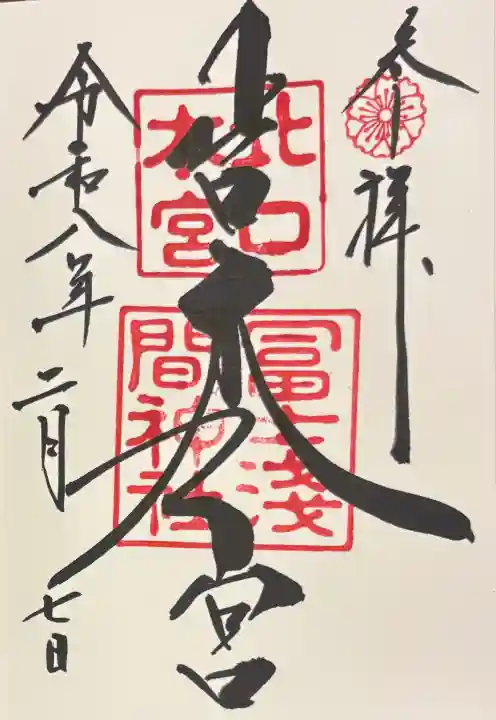 奉拝
北口
本宮
冨士淺
間神社
宮
令和八年二月七日